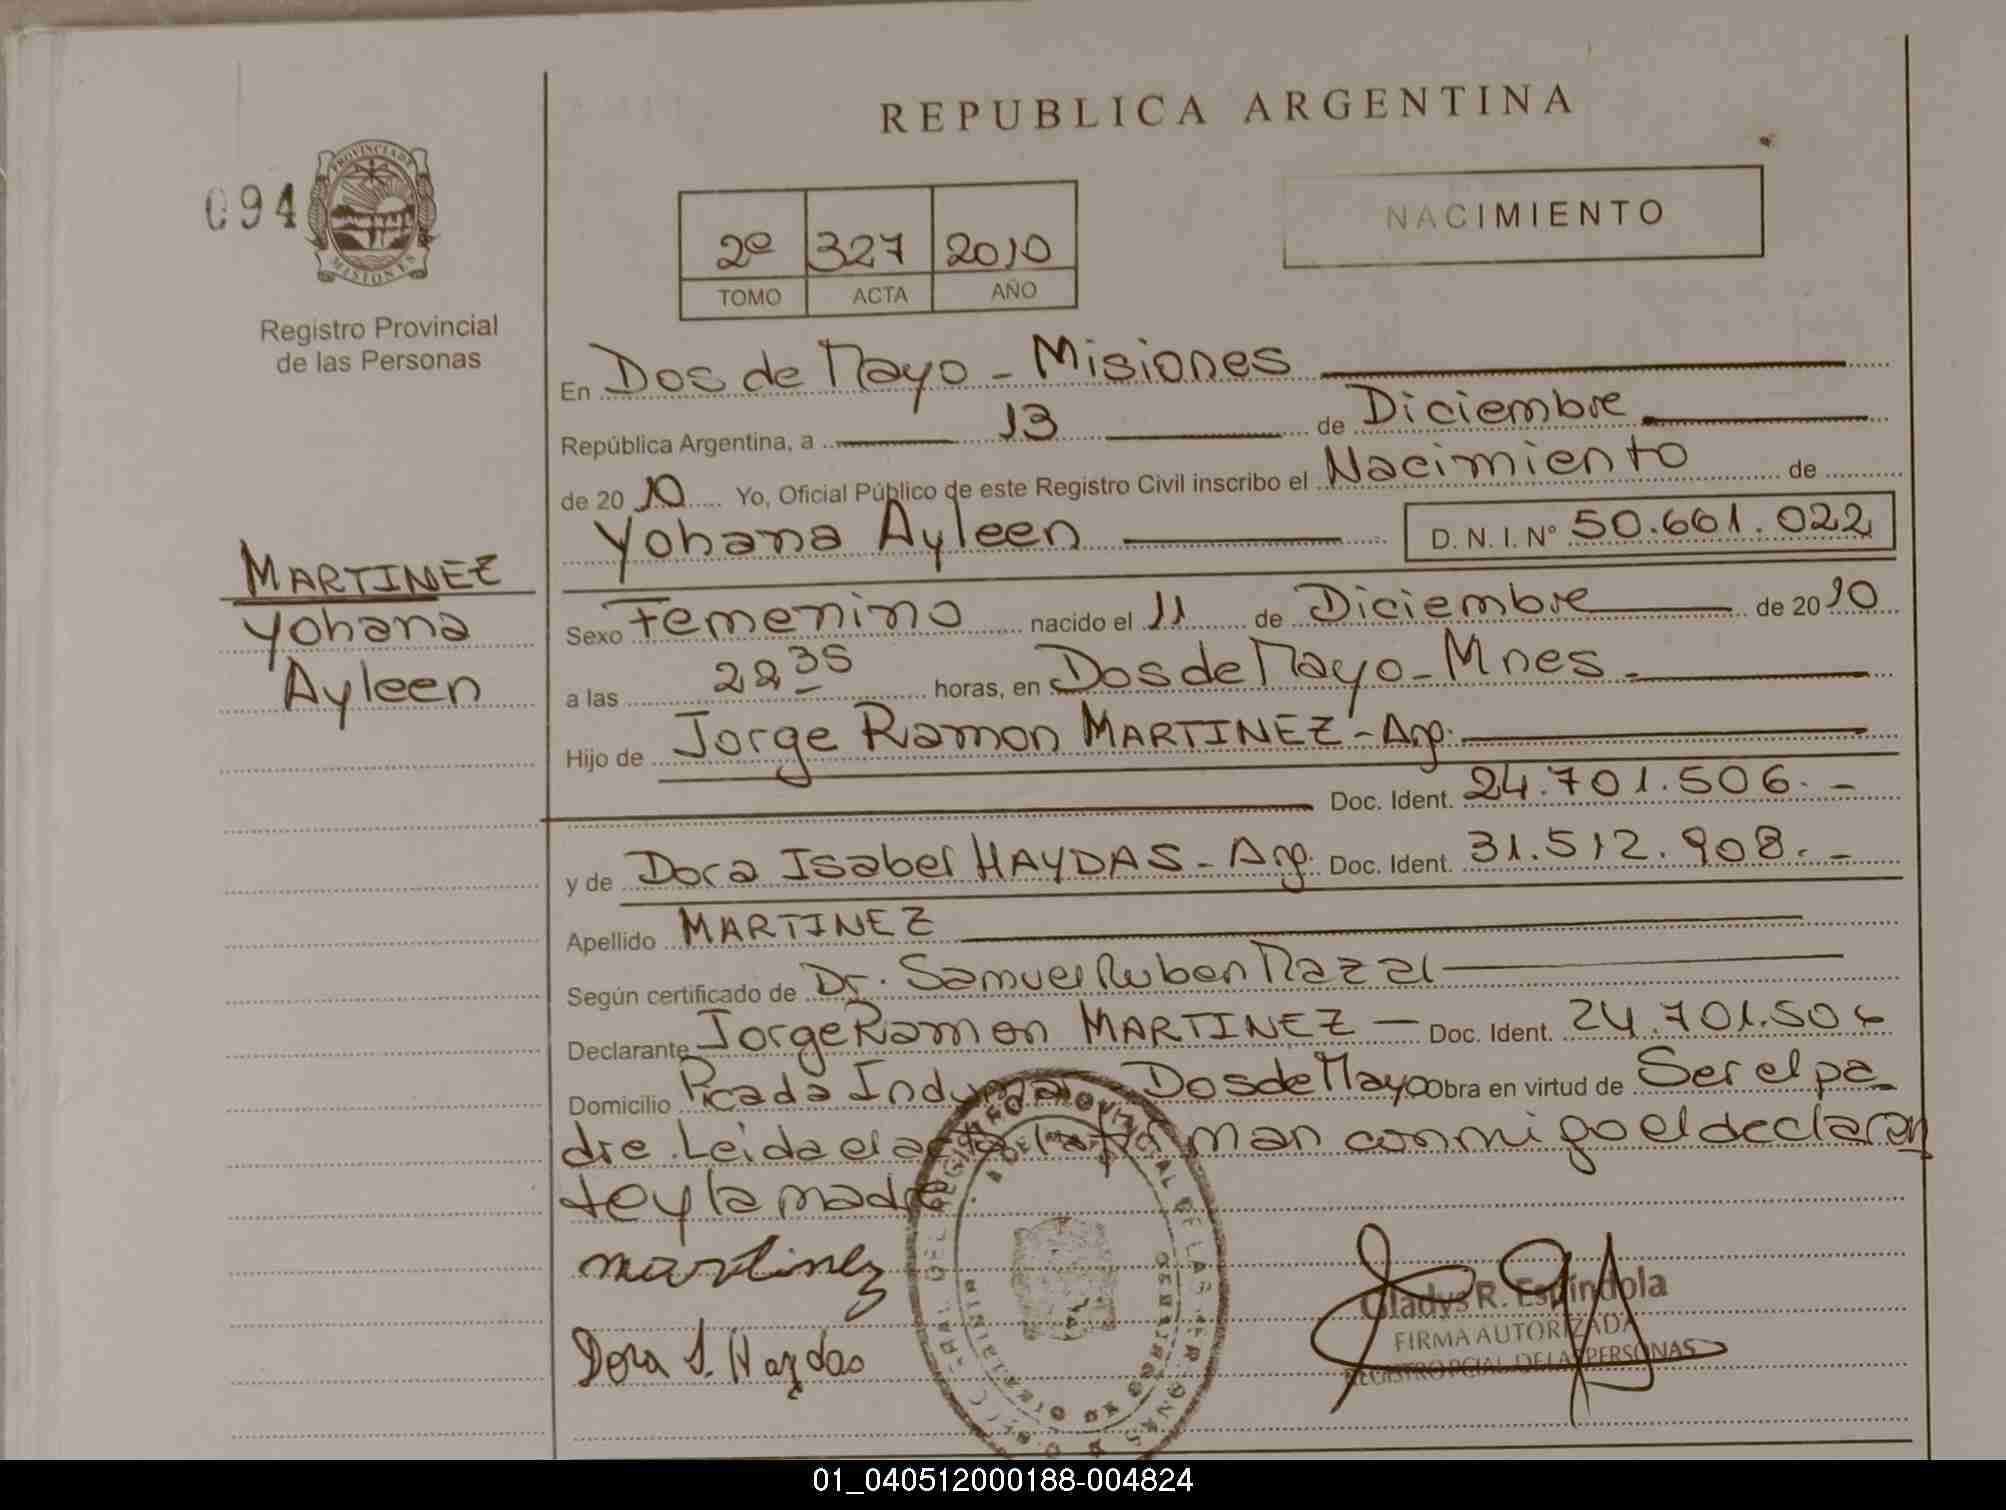 REPUBLICA ARGENTINA
094
PROVINCIA DE
MISIONES
Registro Provincial
de las Personas
2º 327 2010
TOMO ACTA AÑO
NACIMIENTO
En Dos de Mayo - Misiones
República Argentina, a 13 de Diciembre
de 20 10 Yo, Oficial Público de este Registro Civil inscribo el Nacimiento de
Yohana Ayleen D. N. I. Nº 50.661.022
MARTINEZ
Yohana
Ayleen
Sexo Femenino nacido el 11 de Diciembre de 20 10
a las 22 35 horas, en Dos de Mayo - Mnes
Hijo de Jorge Ramon MARTINEZ - Arg.
Doc. Ident. 24.701.506. -
y de Dora Isabel HAYDAS - Arg. Doc. Ident. 31.512.908. -
Apellido MARTINEZ
Según certificado de Dr. Samuel Ruben Mazal
Declarante Jorge Ramon MARTINEZ - Doc. Ident. 24.701.506
Domicilio Picada Dos de Mayo Obra en virtud de Ser el pa
dre. Leida el acta la firman conmigo el declaran
te y la madre.
martinez
Dora I. Haydas
Gladys R. Espíndola
FIRMA AUTORIZADA
REGISTRO PCIAL. DE LAS PERSONAS
01_040512000188-004824